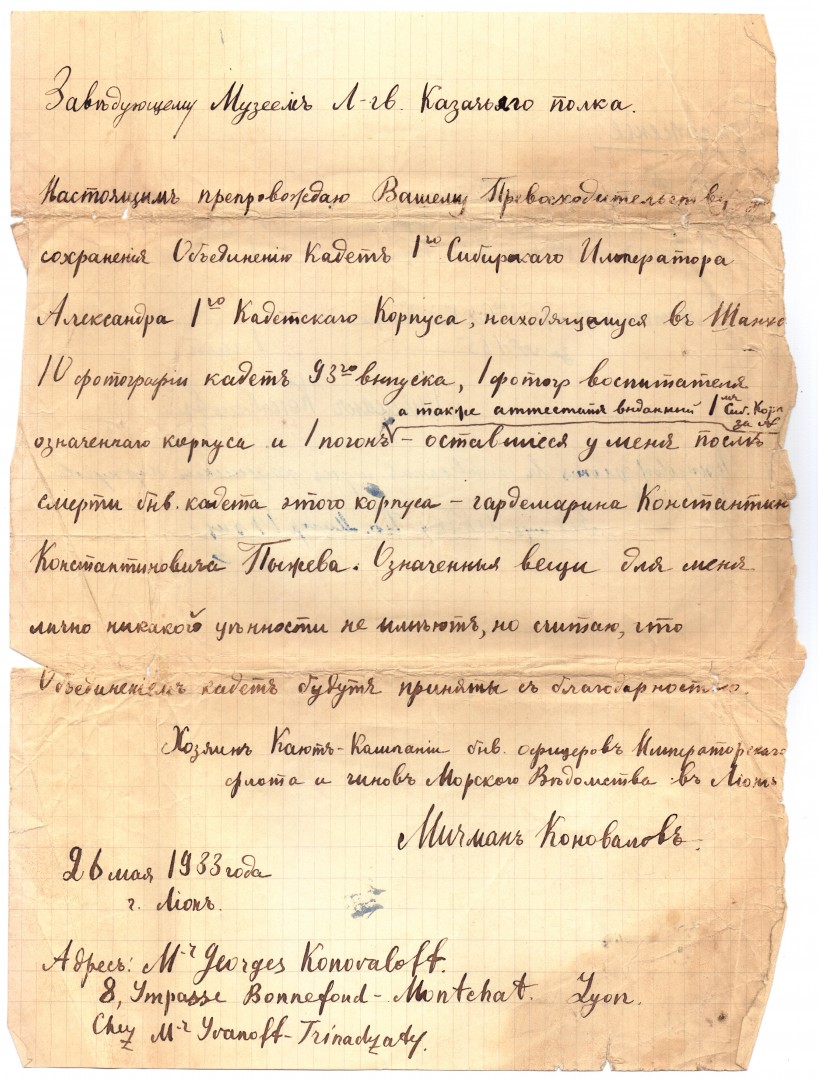 Завѣдующему Музеемъ Л-гв. Казачьяго полка.
Настоящимъ препровождаю Вашему Превосходительству,
сохраненія Объединенію Кадетъ 1го Сибирскаго Императора
Александра 1го Кадетскаго Корпуса, находящемуся въ Шанха
10 фотографіи кадетъ 93го выпуска, 1 фотогр воспитателя
а также аттестатъ выданный 1мъ Сиб. Корп
за №
означеннаго корпуса и 1 погонъ – оставшіеся у меня послѣ
смерти быв. кадета этого корпуса – гардемарина Константин
Константиновича Пыжева. Означенныя вещи для меня
лично никакой цѣнности не имѣютъ, но считаю, что
Объединеніемъ кадетъ будутъ приняты съ благодарностью.
Хозяинъ Каютъ-Кампаніи быв. офицеровъ Императорскаго
флота и чиновъ Морского Вѣдомства въ Ліонѣ
Мичманъ Коноваловъ.
26 мая 1933 года
г. Ліонъ.
Адресъ: Mr Georges Konovaloff.
8, Impasse Bonnefond – Montchat. Lyon.
Chez Mr Ivanoff-Trinadzaty.